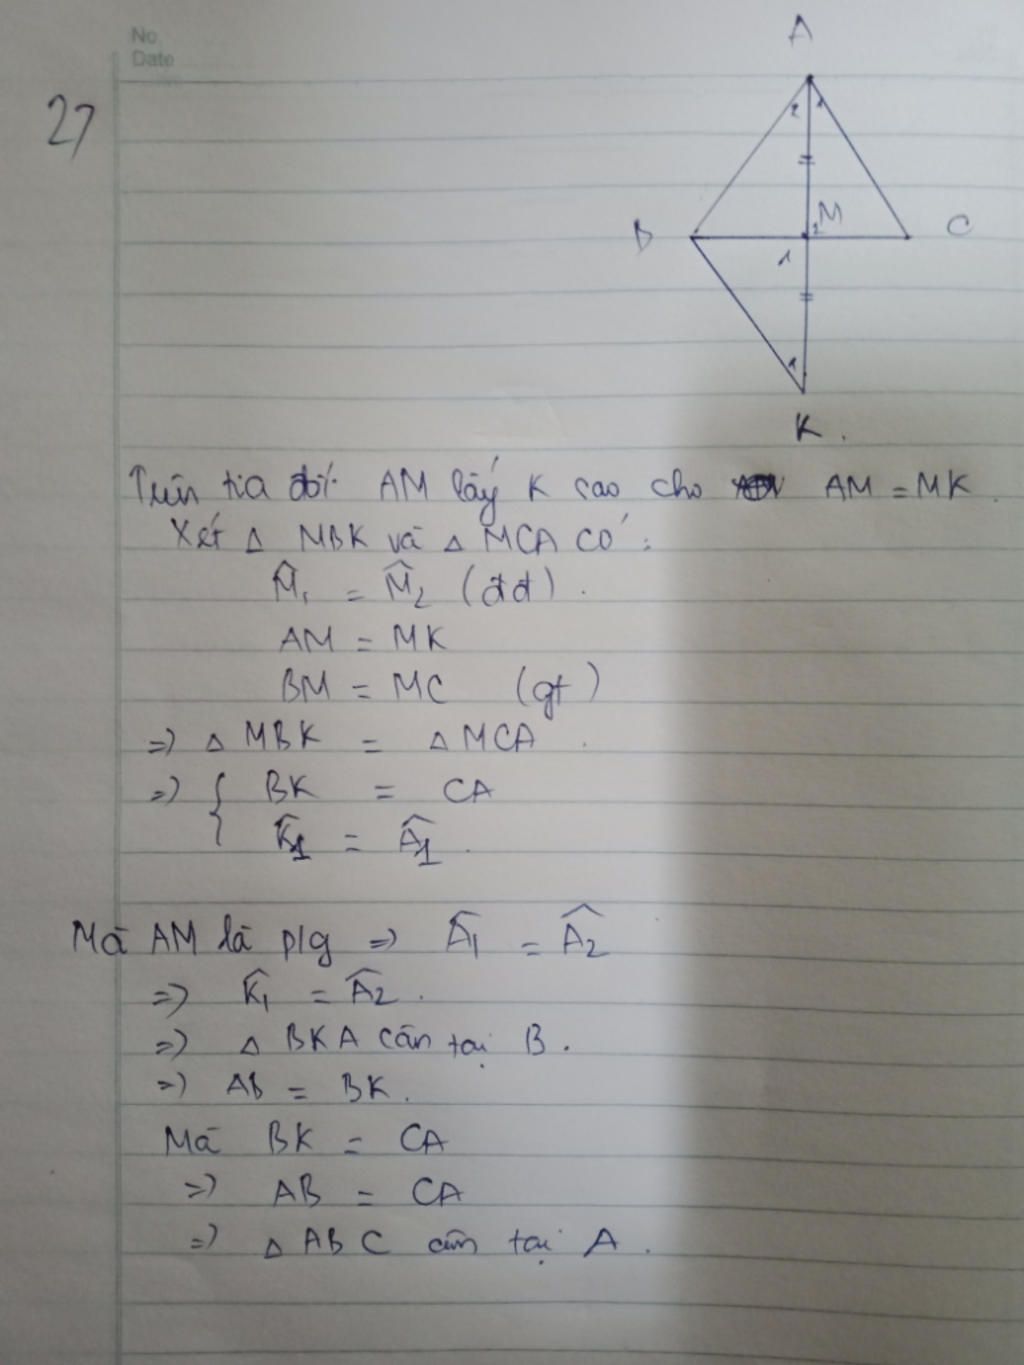 No.
Date
27
A
2 1
B M 2 C
1
1
K.
Trên tia đối AM lấy K sao cho AM = MK.
Xét Δ MBK và Δ MCA có:
M̂₁ = M̂₂ (đđ).
AM = MK
BM = MC (gt)
=> Δ MBK = Δ MCA.
=> { BK = CA
K̂₁ = Â₁.
Mà AM là p/g => Â₁ = Â₂
=> K̂₁ = Â₂.
=> Δ BKA cân tại B.
=> AB = BK.
Mà BK = CA
=> AB = CA
=> Δ ABC cân tại A.